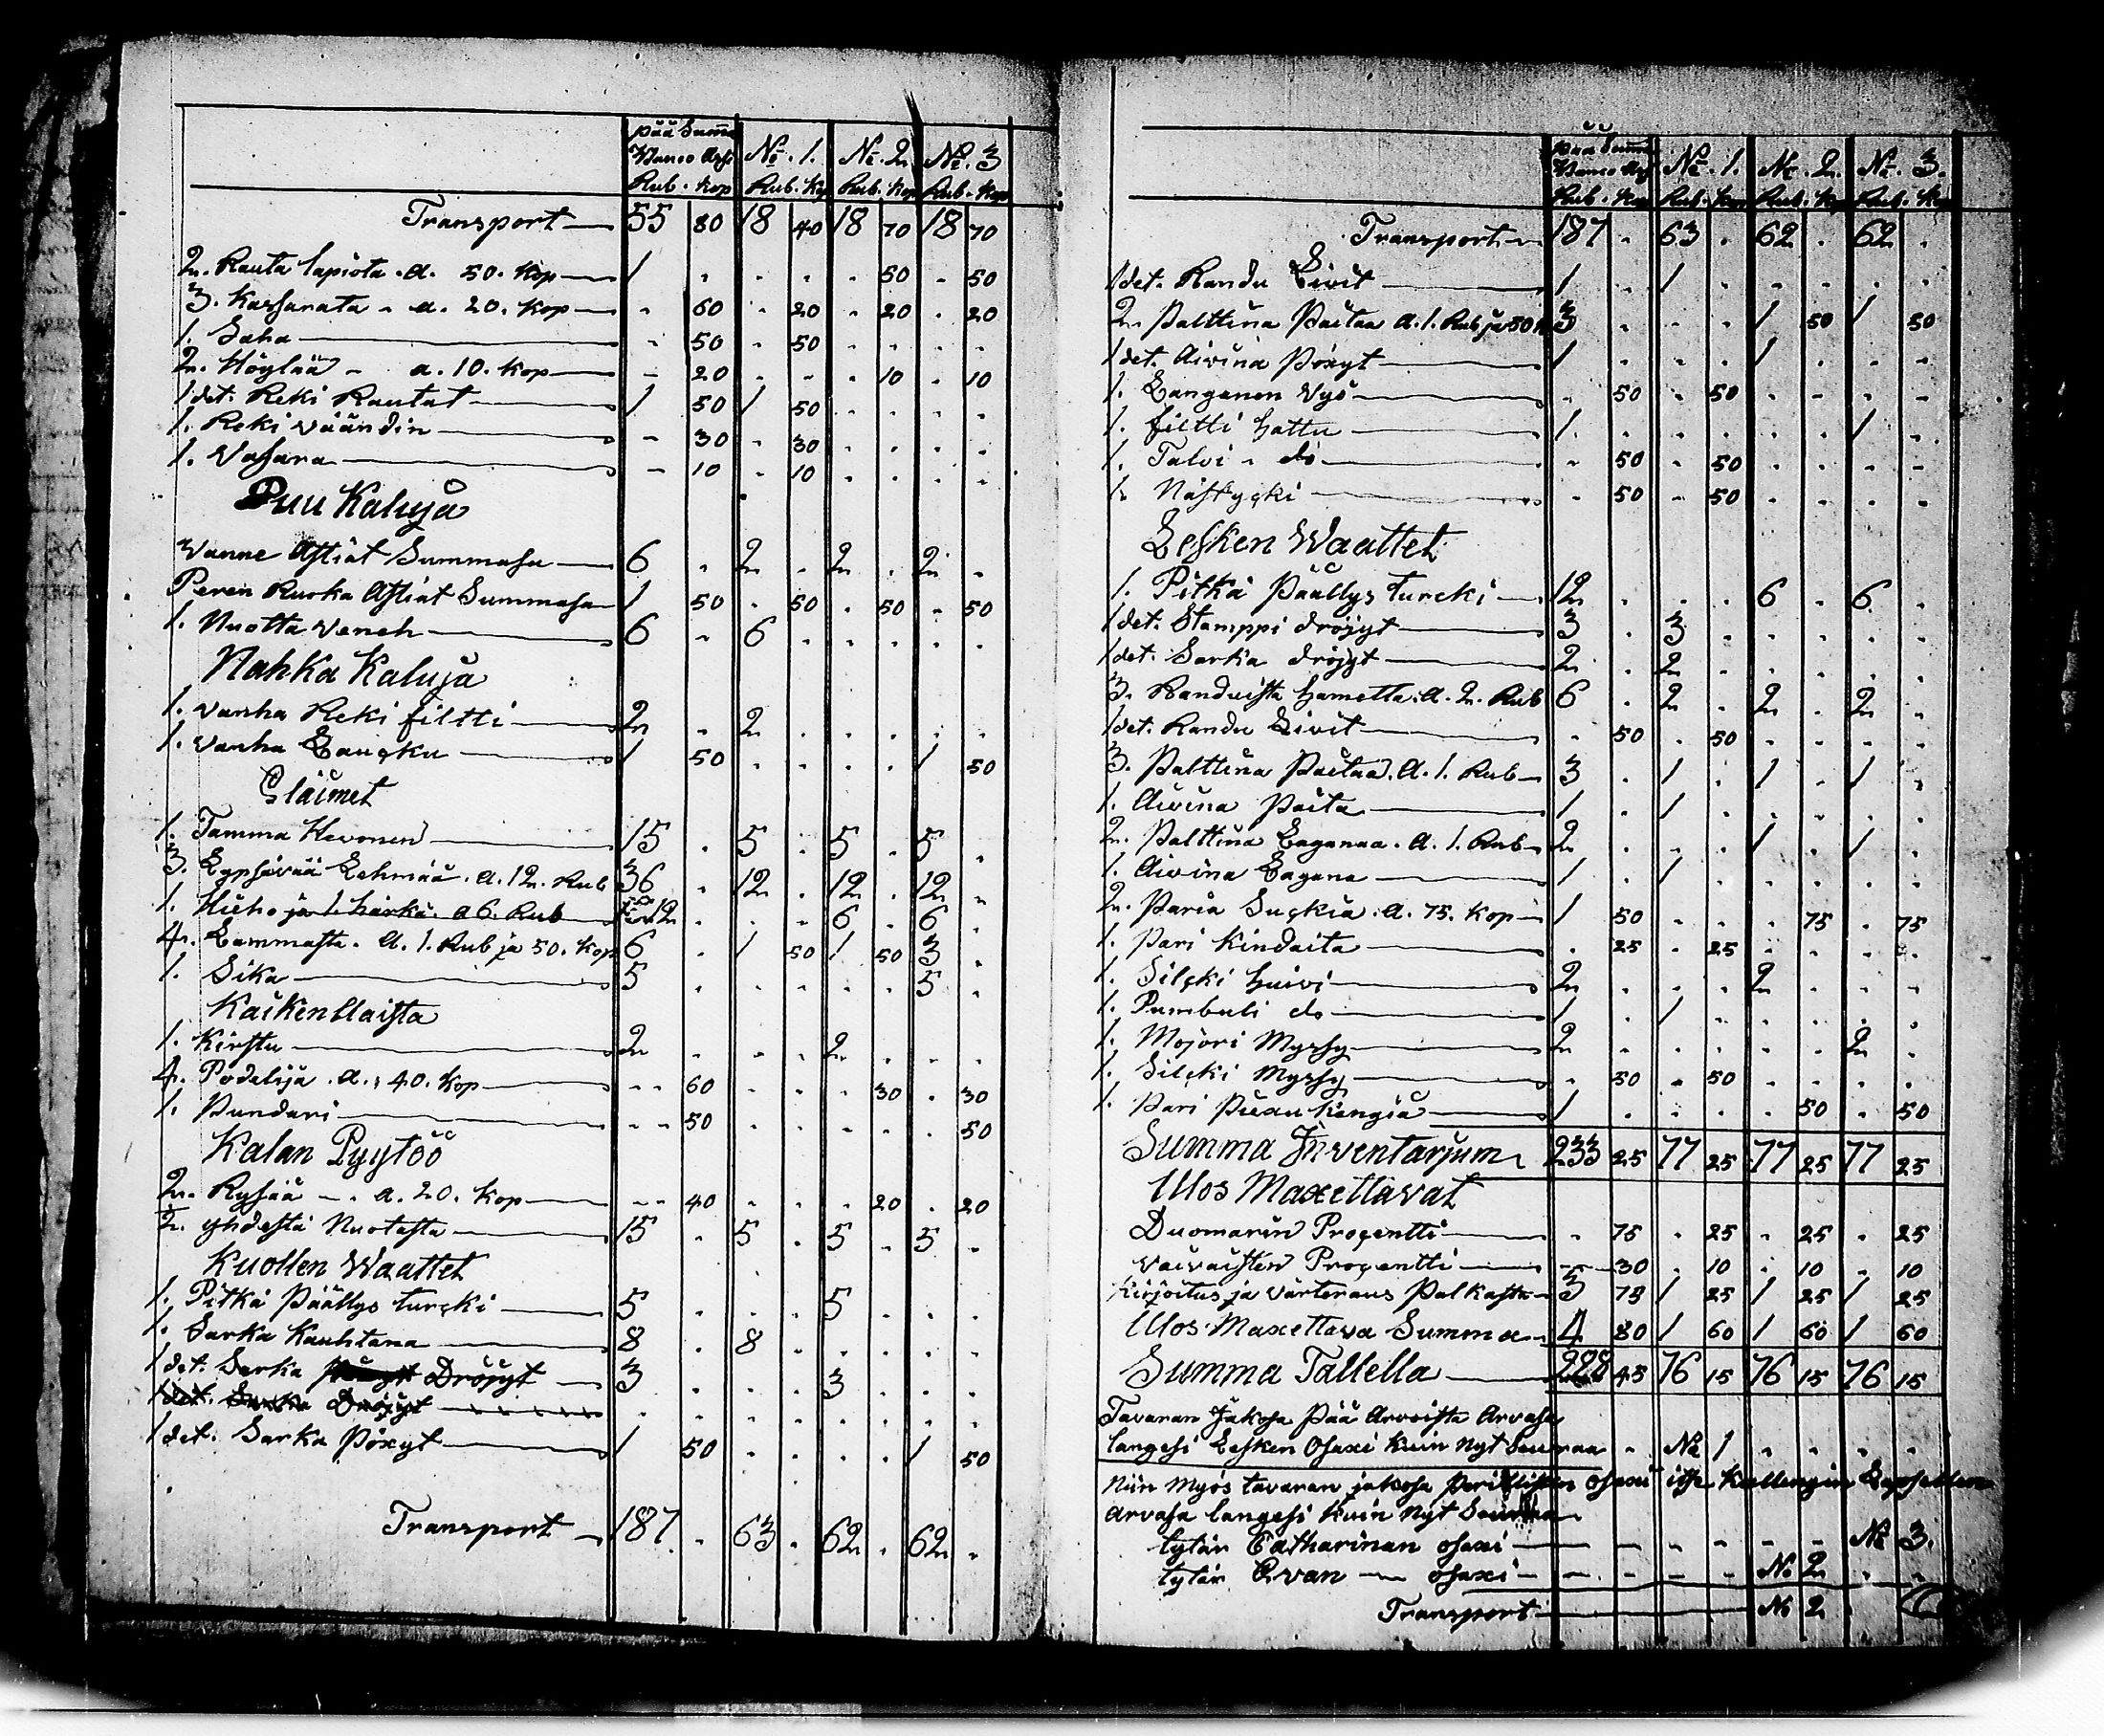 pää Summa
Banco Assi № . 1. № . 2. № . 3
Rub . Kop Rub . Kop Rub . Kop Rub . Kop
Transport 55 80 18 40 18 70 18 70
2. Rauta lapiota . a . 50 . Kop 1 . . . . 50 . 50
3. Kassarata . a . 20 . Kop . 60 . 20 . 20 . 20
1. Saha . 50 . 50 . . . .
2. Höylää . a . 10 . Kop - 20 . . . 10 . 10
1 det. Reki Rautat 1 50 1 50 . . . .
1. Reki väändin - 30 . 30 . . . .
1. Vasara - 10 . 10 . . . .
Puu Kaluja
Vanne Astiat Summasa 6 . 2 . 2 . 2 .
Peren Ruoka Astiat Summasa 1 50 . 50 . 50 . 50
1. Nuotta veneh 6 . 6 . . . . .
Nahka Kaluja
1. vanha Reki filtti 2 . 2 . . . . .
1. vanha Laucku 1 50 . . . . 1 50
Eläimet
1. Tamma Hevonen 15 . 5 . 5 . 5 .
3. Lypsävää Lehmää . a . 12 . Rub 36 . 12 . 12 . 12 .
1. Hieho ja 1 härkä . a 6 . Rub 12 . . . 6 . 6 .
4. Lammasta . a . 1 . Rub ja 50 . Kop 6 . 1 50 1 50 3 .
1. Sika 5 . . . . . 5 .
Kaikenllaista
1. Kirstu 2 . . . 2 . . .
4. Podelija . a . 40 . Kop - - 60 . . . 30 . 30
1. Pundari - - 50 . . . . . 50
Kalan Pyytöö
2. Rysää - . a . 20 . Kop - - 40 . . . 20 . 20
yhdestä Nuotasta 15 . 5 . 5 . 5 .
Kuollen Waattet
1. Pitkä Päällys turcki 5 . . . 5 . . .
1. Sarka Kauhtana 8 . 8 . . . . .
1 det. Sarka Dröjyt 3 . . . 3 . . .
1 det. Sarka Dröjyt . . . . . . . .
1 det. Sarka Pöxyt 1 50 . . . . 1 50
Transport 187 . 63 . 62 . 62 .
pää Summa
Banco Assi № . 1. № . 2. № . 3.
Rub . Kop Rub . Kop Rub . Kop Rub . Kop
Transport 187 . 63 . 62 . 62 .
1 det. Randu Livit 1 . 1 . . . . .
2. Palttina Paitaa a . 1 . Rub ja 50 K 3 . . . 1 50 1 50
1 det. Aivina Pöxyt 1 . . . 1 . . .
1. Langanen Vyö . 50 . 50 . . . .
1. filtti hattu 1 . . . . . 1 .
1. Talvi - do . 50 . 50 . . . .
1. Nästycki . 50 . 50 . . . .
Lesken Waattet
1. Pitkä Päällys turcki 12 . . . 6 . 6 .
1 det. Stamppi dröjyt 3 . 3 . . . . .
1 det. Sarka dröjyt 2 . 2 . . . . .
3. Randuista hametta . a . 2 . Rub 6 . 2 . 2 . 2 .
1 det. Randu Livit . 50 . 50 . . . .
3. Palttina Paitaa . a . 1 . Rub 3 . 1 . 1 . 1 .
1. Aivina Paita 1 . 1 . . . . .
2. Palttina Laganaa . a . 1 . Rub 2 . . . 1 . 1 .
1. Aivina Lagana 1 . 1 . . . . .
2. Paria Suckia . a . 75 . Kop 1 50 . . . 75 . 75
1. Pari Kindaita . 25 . 25 . . . .
1. Silcki huivi 2 . . . 2 . . .
1. Pumbuli do 1 . 1 . . . . .
1. Mojori Myssy 2 . . . . . 2 .
1. Silcki Myssy . 50 . 50 . . . .
1. Pari Piexu Kengiä 1 . . . . 50 . 50
Summa Inventarjum 233 25 77 25 77 25 77 25
Ulos Maxettavat
Duomarin Procentti . 75 . 25 . 25 . 25
vaivaisten Procentti - 30 . 10 . 10 . 10
Kirjoitus ja värteraus Palkasta 3 75 1 25 1 25 1 25
Ulos Maxettava Summa 4 80 1 60 1 60 1 60
Summa Tallella 228 45 76 15 76 15 76 15
Tavaran Jakosa Pää Arvoista Arvasa
langesi Lesken Osaxi Kuin Nyt Seuraa . № 1 . . . . .
Niin Myös tavaran jakosa osaxi
arvasa langesi Kuin Nyt Seuraa
tytär Catharinan osaxi № 3.
tytär Evan osaxi № 2 . .
Transport № 2